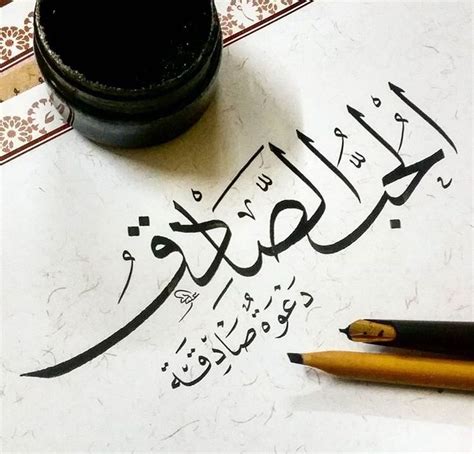 الحُبُّ الصَّادِقُ
دَعْوَةٌ صَادِقَة